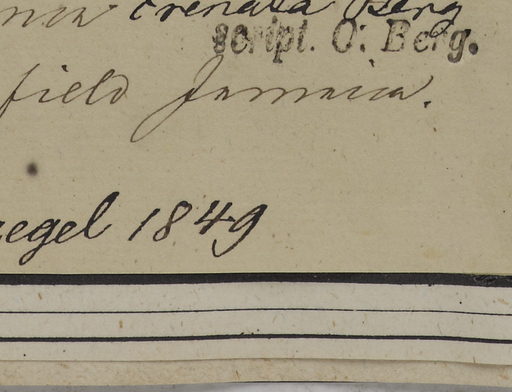 crenata Berg
script. O. Berg.
field Jamaica.
egel 1849